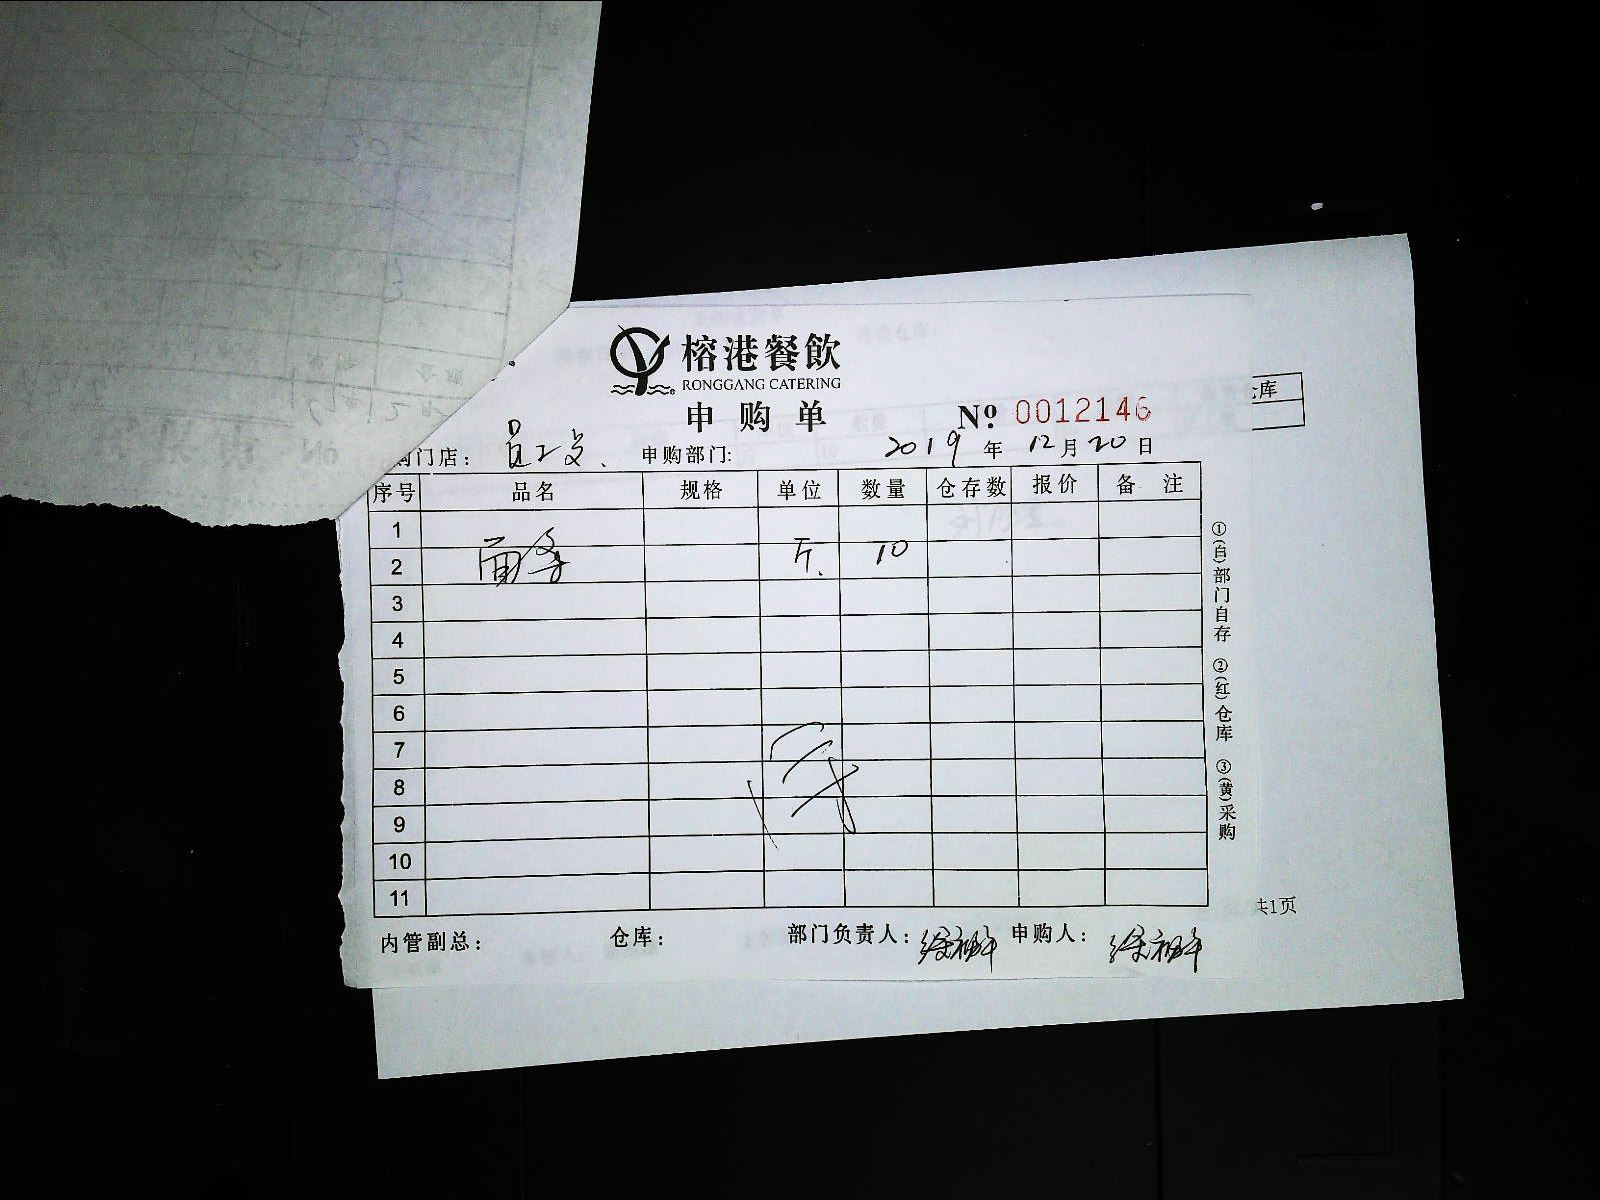 榕港餐飲
RONGGANG CATERING
申购单 Nº 0012146
仓库
购门店： 员工灶、 申购部门: 2019年12月20日
序号 品名 规格 单位 数量 仓存数 报价 备注
1
2 面条 斤. 10
3
4
5
6
7
8
9
10
11
①(白)部门自存 ②(红)仓库 ③(黄)采购
共1页
内管副总： 仓库： 部门负责人： 申购人：